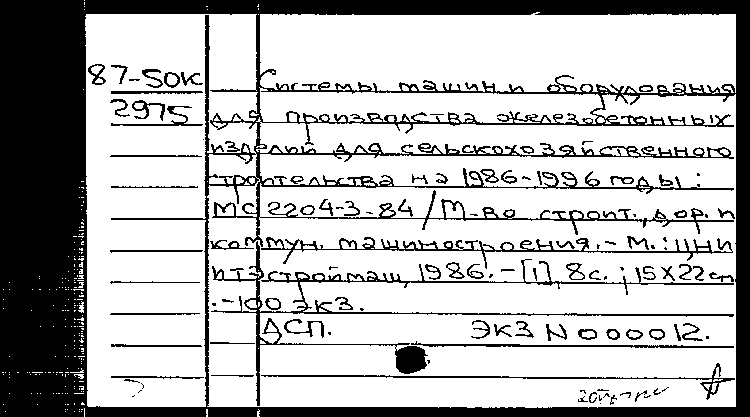 87-50К Системы машин и оборудования
2975 для производства железобетонных
изделий для сельскохозяйственного
строительства на 1986-1996 годы:
МС 2204-3-84/М-во строит., дор. и
коммун. машиностроения.- М.: ЦНИ
ИТЭстроймаш, 1986.-[1], 8с.; 15X22см
.-100 экз.
ДСП. Экз N 000012.